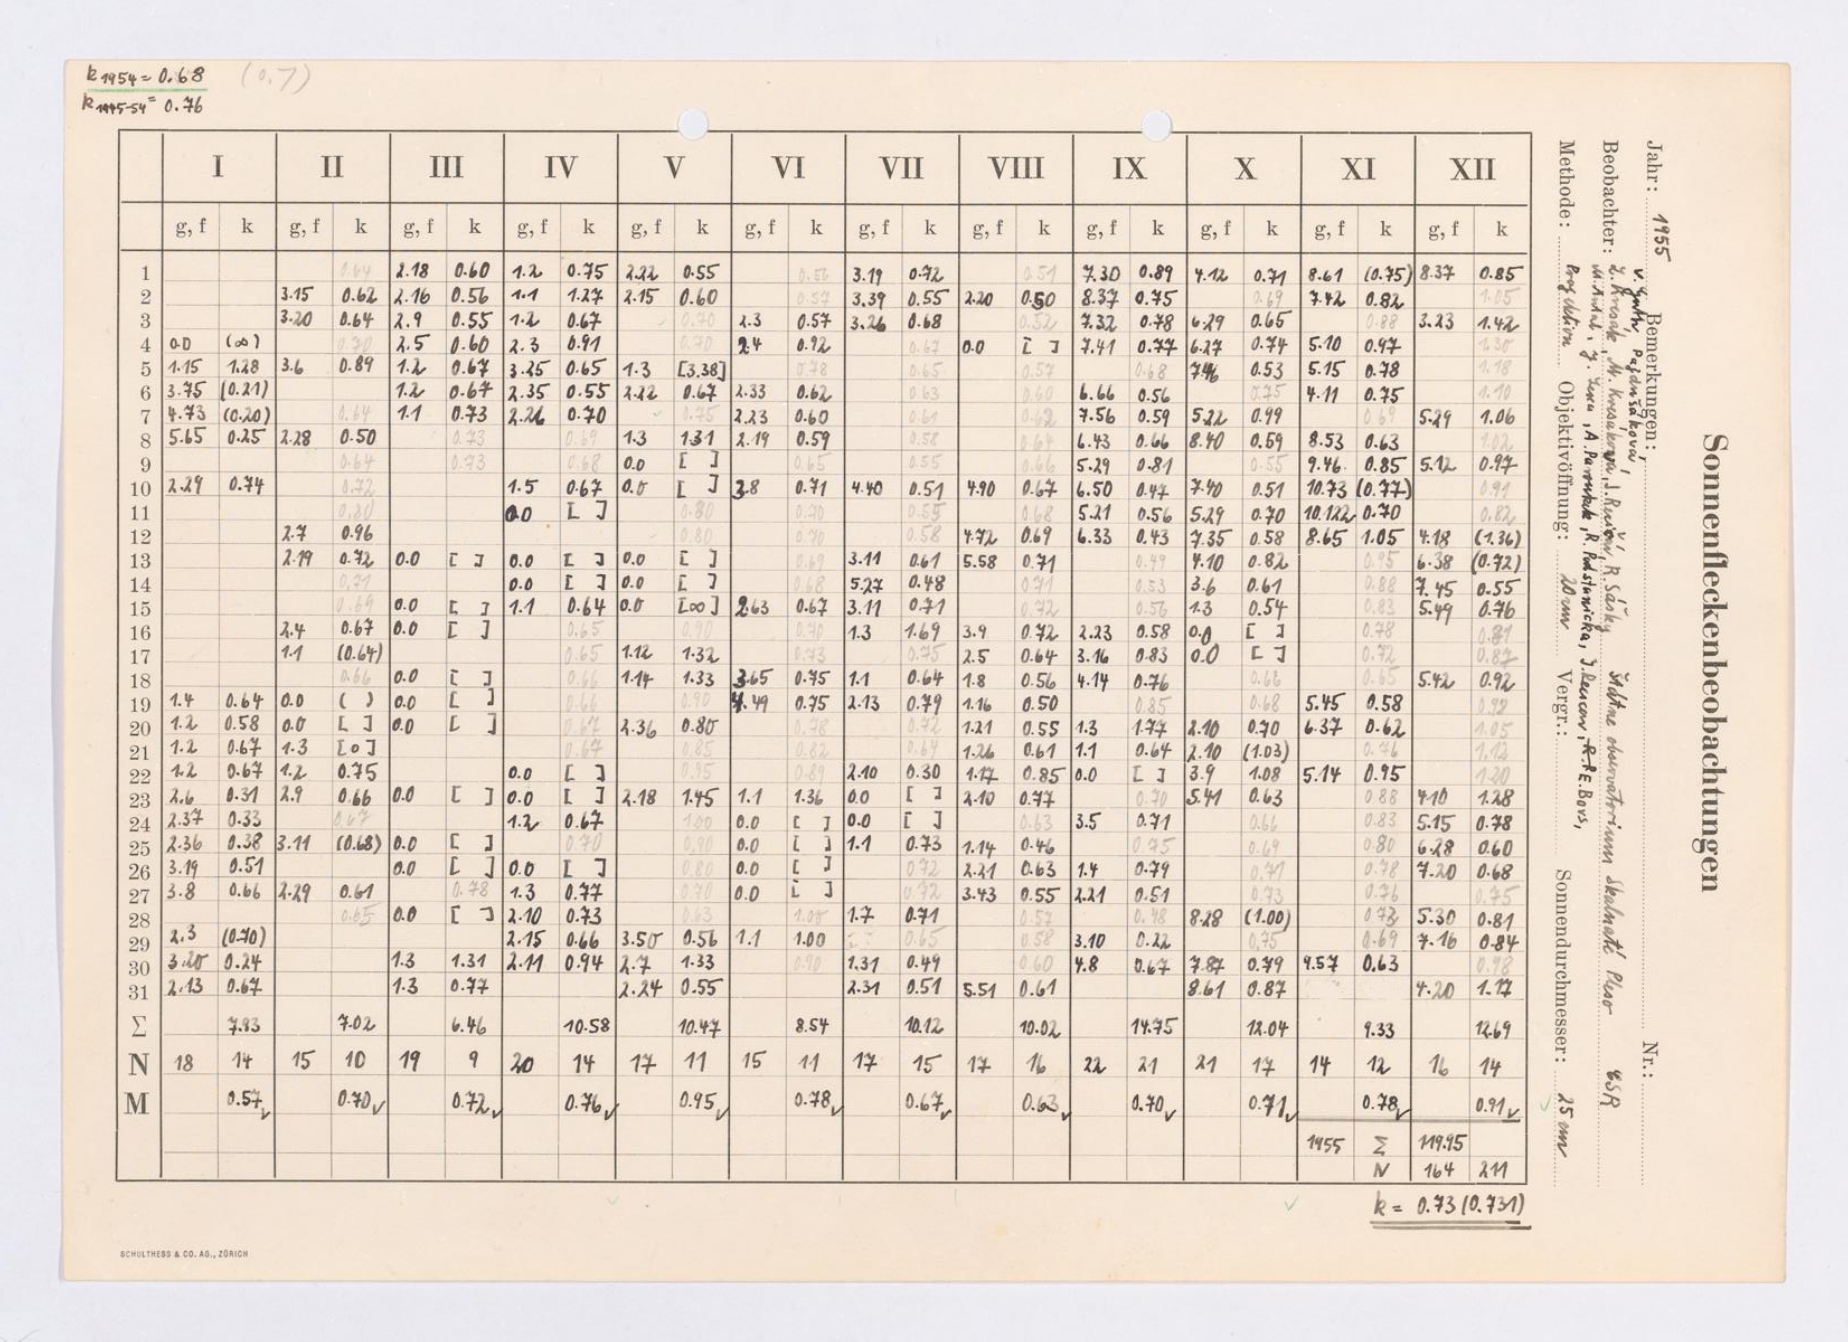 k 1954 = 0.68 (0.7)
k 1945-54 = 0.76
Sonnenfleckenbeobachtungen
Jahr: 1955 Bemerkungen: Nr.:
Beobachter: Štátne observatórium Skalnaté Pleso ČSR
Methode: Projektion Objektivöffnung: 20 cm Vergr.: Sonnendurchmesser: 25 cm
I II III IV V VI VII VIII IX X XI XII
g, f k g, f k g, f k g, f k g, f k g, f k g, f k g, f k g, f k g, f k g, f k g, f k
1 0.64 2.18 0.60 1.2 0.75 2.22 0.55 0.56 3.19 0.72 0.51 7.30 0.89 4.12 0.71 8.61 (0.75) 8.37 0.85
2 3.15 0.62 2.16 0.56 1.1 1.27 2.15 0.60 0.57 3.39 0.55 2.20 0.50 8.37 0.75 0.69 7.42 0.82 1.05
3 3.20 0.64 2.9 0.55 1.2 0.67 0.70 2.3 0.57 3.26 0.68 0.52 7.32 0.78 6.29 0.65 0.88 3.23 1.42
4 0.0 (∞) 0.70 2.5 0.60 2.3 0.91 0.70 2.4 0.92 0.67 0.0 [ ] 7.41 0.77 6.27 0.74 5.10 0.97 1.30
5 1.15 1.28 3.6 0.89 1.2 0.67 3.25 0.65 1.3 [3.38] 0.78 0.65 0.57 0.68 7.46 0.53 5.15 0.78 1.18
6 3.75 (0.21) 1.2 0.67 2.35 0.55 2.22 0.67 2.33 0.62 0.63 0.60 6.66 0.56 0.75 4.11 0.75 1.10
7 4.73 (0.20) 0.64 1.1 0.73 2.26 0.70 0.75 2.23 0.60 0.61 0.62 7.56 0.59 5.22 0.99 0.69 5.29 1.06
8 5.65 0.25 2.28 0.50 0.73 0.69 1.3 1.31 2.19 0.59 0.58 0.64 6.43 0.66 8.40 0.59 8.53 0.63 1.02
9 0.64 0.73 0.68 0.0 [ ] 0.65 0.55 0.66 5.29 0.81 0.55 9.46 0.85 5.12 0.97
10 2.29 0.74 0.72 1.5 0.67 0.0 [ ] 3.8 0.71 4.40 0.51 4.90 0.67 6.50 0.47 7.40 0.51 10.73 (0.77) 0.91
11 0.80 0.0 [ ] 0.80 0.70 0.55 0.68 5.21 0.56 5.29 0.70 10.122 0.70 0.82
12 2.7 0.96 0.80 0.70 0.58 4.72 0.69 6.33 0.43 7.35 0.58 8.65 1.05 4.18 (1.36)
13 2.19 0.72 0.0 [ ] 0.0 [ ] 0.0 [ ] 0.69 3.11 0.61 5.58 0.71 0.49 4.10 0.82 0.95 6.38 (0.72)
14 0.71 0.0 [ ] 0.0 [ ] 0.68 5.27 0.48 0.71 0.53 3.6 0.61 0.88 7.45 0.55
15 0.69 0.0 [ ] 1.1 0.64 0.0 [∞] 2.63 0.67 3.11 0.71 0.72 0.56 1.3 0.54 0.83 5.49 0.76
16 2.4 0.67 0.0 [ ] 0.65 0.90 0.70 1.3 1.69 3.9 0.72 2.23 0.58 0.0 [ ] 0.78 0.81
17 1.1 (0.64) 0.65 1.12 1.32 0.73 0.75 2.5 0.64 3.16 0.83 0.0 [ ] 0.72 0.87
18 0.66 0.0 [ ] 0.66 1.14 1.33 3.65 0.75 1.1 0.64 1.8 0.56 4.14 0.76 0.66 0.65 5.42 0.92
19 1.4 0.64 0.0 ( ) 0.0 [ ] 0.66 0.90 4.49 0.75 2.13 0.79 1.16 0.50 0.85 0.68 5.45 0.58 0.98
20 1.2 0.58 0.0 [ ] 0.0 [ ] 0.67 2.36 0.80 0.78 0.72 1.21 0.55 1.3 1.77 2.10 0.70 6.37 0.62 1.05
21 1.2 0.67 1.3 [0] 0.67 0.85 0.82 0.64 1.26 0.61 1.1 0.64 2.10 (1.03) 0.76 1.12
22 1.2 0.67 1.2 0.75 0.0 [ ] 0.95 0.89 2.10 0.30 1.17 0.85 0.0 [ ] 3.9 1.08 5.14 0.95 1.20
23 2.6 0.31 2.9 0.66 0.0 [ ] 0.0 [ ] 2.18 1.45 1.1 1.36 0.0 [ ] 2.10 0.77 0.70 5.41 0.63 0.88 4.10 1.28
24 2.37 0.33 0.67 1.2 0.67 1.00 0.0 [ ] 0.0 [ ] 0.63 3.5 0.71 0.66 0.83 5.15 0.78
25 2.36 0.38 3.11 (0.68) 0.0 [ ] 0.70 0.90 0.0 [ ] 1.1 0.73 1.14 0.46 0.75 0.69 0.80 6.28 0.60
26 3.19 0.51 0.0 [ ] 0.0 [ ] 0.80 0.0 [ ] 0.72 2.21 0.63 1.4 0.79 0.71 0.78 7.20 0.68
27 3.8 0.66 2.29 0.61 0.78 1.3 0.77 0.70 0.0 [ ] 0.72 3.43 0.55 2.21 0.51 0.73 0.76 0.75
28 0.65 0.0 [ ] 2.10 0.73 0.63 1.00 1.7 0.71 0.57 0.48 8.28 (1.00) 0.73 5.30 0.81
29 2.3 (0.70) 2.15 0.66 3.50 0.56 1.1 1.00 0.65 0.58 3.10 0.22 0.75 0.69 7.16 0.84
30 3.20 0.24 1.3 1.31 2.11 0.94 2.7 1.33 0.90 1.31 0.49 0.60 4.8 0.67 7.87 0.79 9.57 0.63 0.98
31 2.13 0.67 1.3 0.77 2.24 0.55 2.31 0.51 5.51 0.61 8.61 0.87 4.20 1.17
Σ 7.93 7.02 6.46 10.58 10.47 8.54 10.12 10.02 14.75 12.04 9.33 12.69
N 18 14 15 10 19 9 20 14 17 11 15 11 17 15 17 16 22 21 21 17 14 12 16 14
M 0.57 0.70 0.72 0.76 0.95 0.78 0.67 0.63 0.70 0.71 0.78 0.91
1955 Σ 119.95
N 164 211
k = 0.73 (0.731)
SCHULTHESS & CO. AG., ZÜRICH